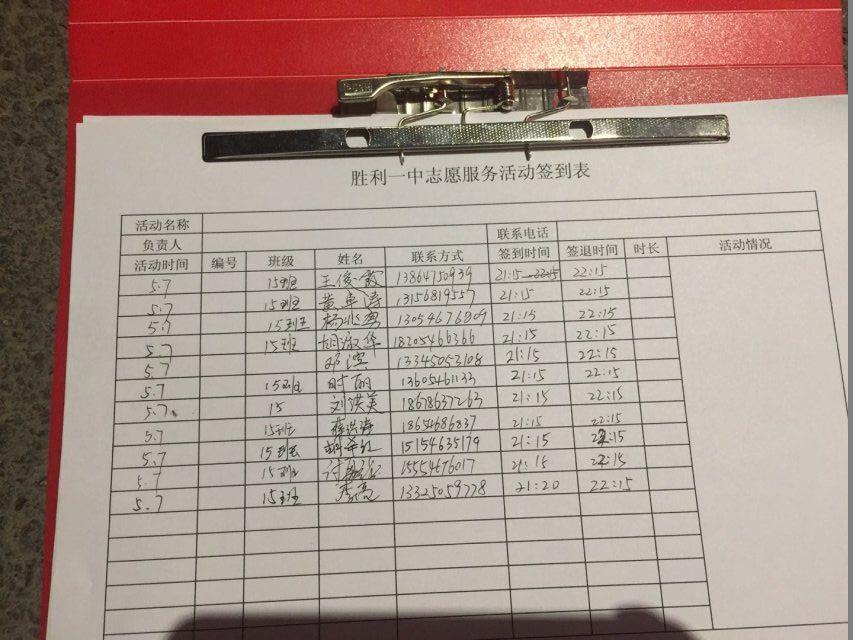 胜利一中志愿服务活动签到表
活动名称
负责人 联系电话
活动时间 编号 班级 姓名 联系方式 签到时间 签退时间 时长 活动情况
5.7 15班 王俊霞 13864750939 21:15 22:15
5.7 15班 黄卓涛 13156819557 21:15 22:15
5.7 15班 13054676809 21:15 22:15
5.7 15班 胡淑华 18205466366 21:15 22:15
5.7 邓滨 13345053108 21:15 22:15
5.7 15班 时丽 13605461133 21:15 22:15
5.7 15 刘洪美 18678637263 21:15 22:15
5.7 15班 18654686837 21:15 22:15
5.7 15班 15154635179 21:15 22:15
5.7 15班 15554676017 21:15 22:15
5.7 15班 李亮 13325059778 21:20 22:15